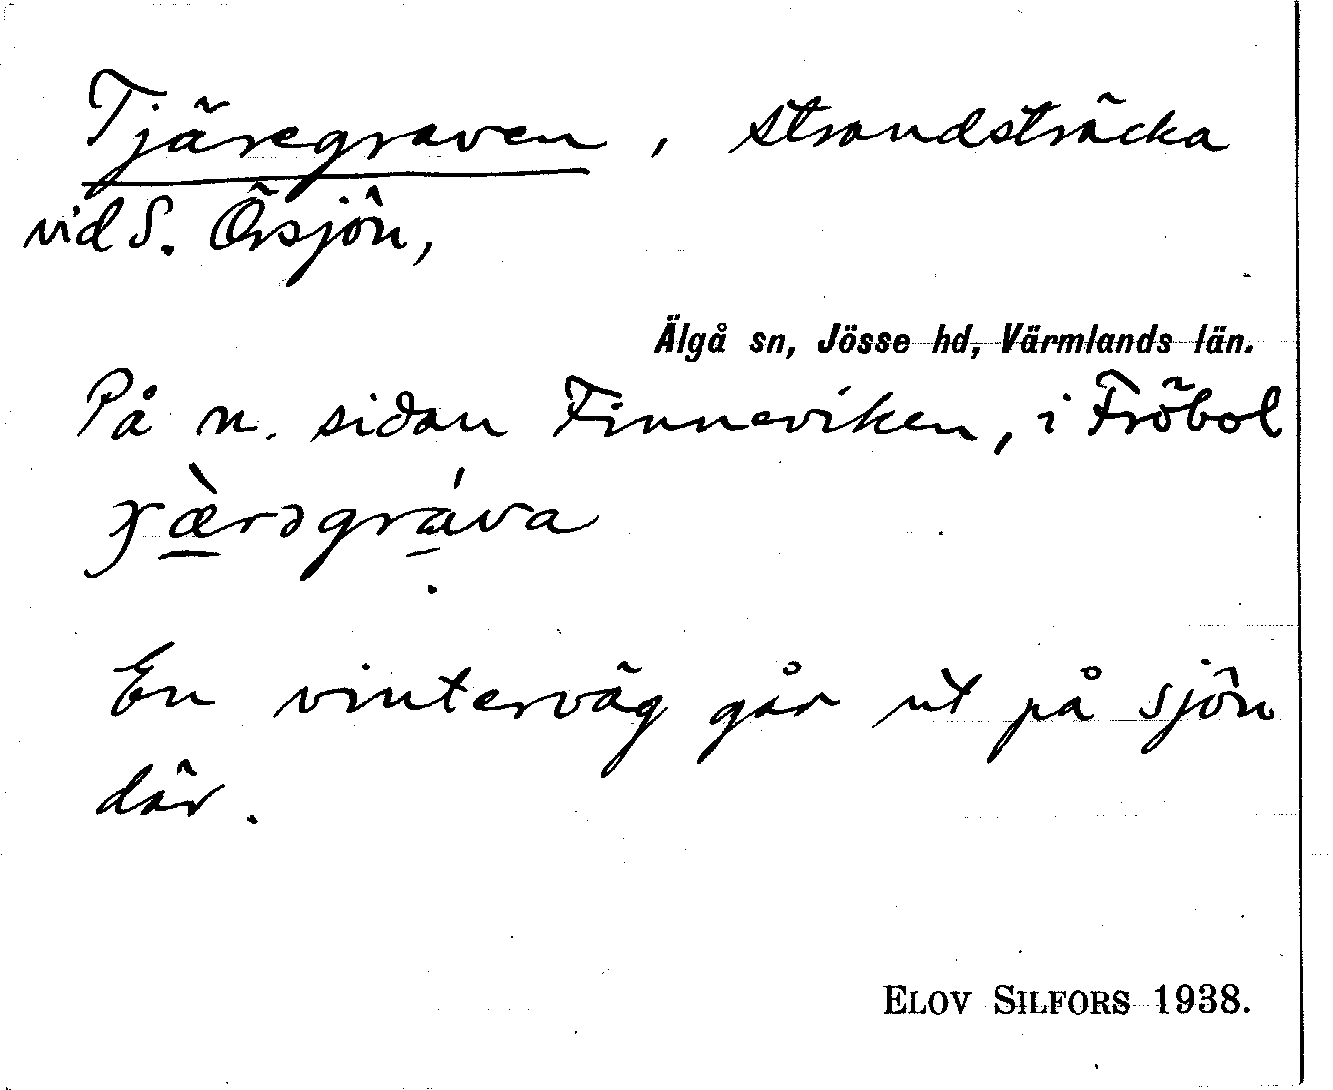 Tjäregraven, strandsträcka
vid S. Örsjön,
Älgå sn, Jösse hd, Värmlands län.
På n. sidan Finneviken, i Fröbol
ɣæ̀rəgráva
En vinterväg går ut på sjön
där.
ELOV SILFORS 1938.